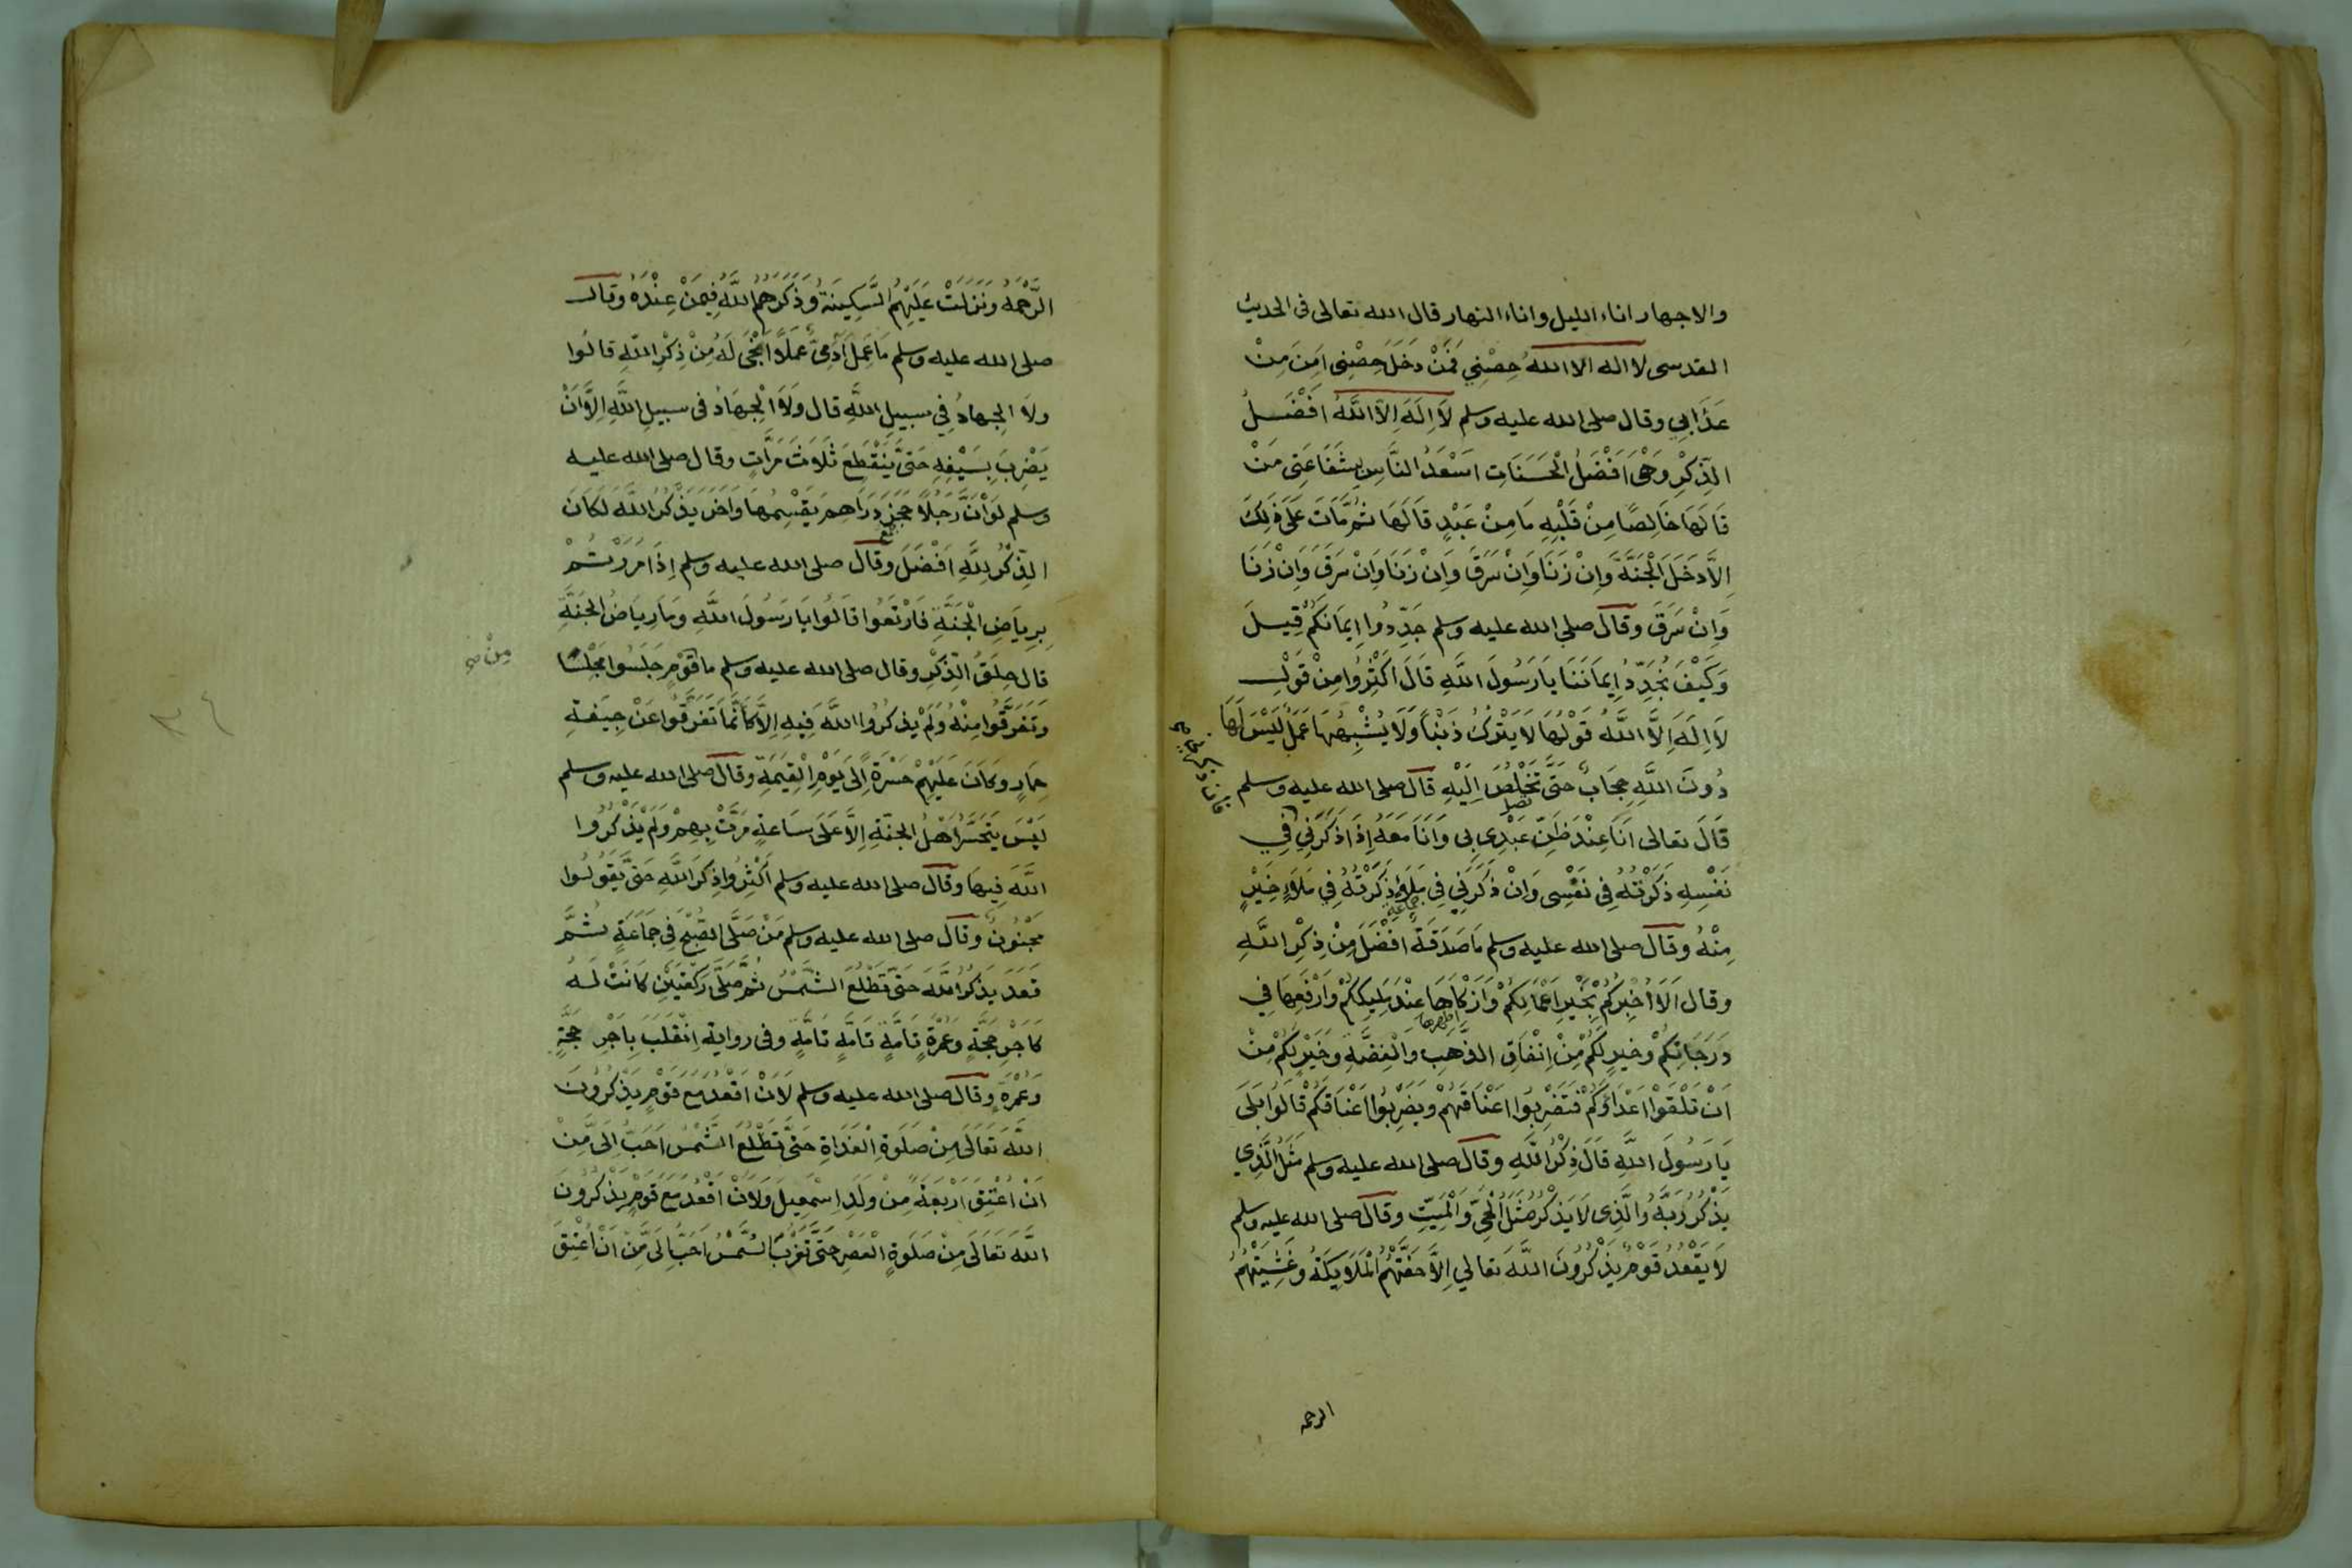 والاجهار اناء الليل واناء النهار قال الله تعالى فى الحديث
القدسى لا اله الا الله حِصْنِي فَمَنْ دَخَلَ حِصْنِى اَمِنَ مِنْ
عَذَابِي وقال صلى الله عليه وسلم لَا اِلَهَ اِلَّا اللَّهُ اَفْضَلُ
الذِّكْرِ وَهْىَ اَفْضَلُ الْحَسَنَاتِ اَسْعَدُ النَّاسِ بِشَفَاعَتِى مَنْ
قَالَهَا خَالِصًا مِنْ قَلْبِهِ مَا مِنْ عَبْدٍ قَالَهَا ثُمَّ مَاتَ عَلَى ذَلِكَ
اِلَّا دَخَلَ الْجَنَّةَ وَاِنْ زَنَا وَاِنْ سَرَقَ وَاِنْ زَنَا وَاِنْ سَرَقَ وَاِنْ زَنَا
وَاِنْ سَرَقَ وَقَالَ صلى الله عليه وسلم جَدِّدُوا اِيمَانَكُمْ قِيلَ
وَكَيْفَ نُجَدِّدُ اِيمَانَنَا يَا رَسُولَ اللَّهِ قَالَ اَكْثِرُوا مِنْ قَوْلِ
لَا اِلَهَ اِلَّا اللَّهُ قَوْلُهَا لَا يَتْرُكُ ذَنْبًا وَلَا يُشْبِهُهَا عَمَلٌ لَيْسَ لَهَا
دُونَ اللَّهِ حِجَابٌ حَتَّى تَخْلُصَ اِلَيْهِ قَالَ صلى الله عليه وسلم
تصل
قَالَ تعالى اَنَا عِنْدَ ظَنِّ عَبْدِى بِى وَاَنَا مَعَهُ اِذَا ذَكَرَنِي فِي
نَفْسِهِ ذَكَرْتُهُ فِى نَفْسِى وَاِنْ ذَكَرَنِي فِى مَلَاءٍ ذَكَرْتُهُ فِي مَلَاءٍ خَيْرٍ
جماعة
مِنْهُ وَقَالَ صلى الله عليه وسلم مَا صَدَقَةٌ اَفْضَلَ مِنْ ذِكْرِ اللَّهِ
وقال اَلَا اُخْبِرُكُمْ بِخَيْرِ اَعْمَالِكُمْ وَاَزْكَاهَا عِنْدَ مَلِيكِكُمْ وَاَرْفَعِهَا فِي
اطهرها
دَرَجَاتِكُمْ وَخَيْرٍ لَكُمْ مِنْ اِنْفَاقِ الذَّهَبِ وَالْفِضَّةِ وَخَيْرٍ لَكُمْ مِنْ
اَنْ تَلْقَوْا اَعْدَاوَكُمْ فَتَضْرِبُوا اَعْنَاقَهُمْ وَيَضْرِبُوا اَعْنَاقَكُمْ قَالُوا بَلَى
يَا رَسُولَ اللَّهِ قَالَ ذِكْرُ اللَّهِ وَقَالَ صلى الله عليه وسلم مَثَلُ الَّذِي
يَذْكُرُ رَبَّهُ وَالَّذِى لَا يَذْكُرُ مَثَلُ الْحَىِّ وَالْمَيِّتِ وَقَالَ صلى الله عليه وسلم
لَا يَقْعُدُ قَوْمٌ يَذْكُرُونَ اللَّهَ تعالى اِلَّا حَفَّتْهُمُ الْمَلَايِكَةُ وَغَشِيَتْهُمُ
الرحمة
الرَّحْمَةُ وَنَزَلَتْ عَلَيْهِمُ السَّكِينَةُ وَذَكَرَهُمُ اللَّهُ فِيمَنْ عِنْدَهُ وَقَالَ
صلى الله عليه وسلم مَا عَمِلَ اَدَمِىٌّ عَمَلًا اَنْجَى لَهُ مِنْ ذِكْرِ اللَّهِ قَالُوا
وَلَا الْجِهَادُ فِي سَبِيلِ اللَّهِ قال وَلَا الْجِهَادُ فى سبيلِ اللَّهِ اِلَّا اَنْ
يَضْرِبَ بِسَيْفِهِ حَتَّى يَنْقَطِعَ ثَلَاثَ مَرَّاتٍ وقال صلى الله عليه
وسلم لَوْ اَنَّ رَجُلًا حجره دَرَاهِمَ يَقْسِمُهَا وَاَخَرَ يَذْكُرُ اللَّهَ لَكَانَ
الذِّكْرُ لِلَّهِ اَفْضَلَ وَقَالَ صلى الله عليه وسلم اِذَا مَرَرْتُمْ
بِرِيَاضِ الْجَنَّةِ فَارْتَعُوا قَالُوا يَا رَسُولَ اللَّهِ وَمَا رِيَاضُ الْجَنَّةِ
قال حِلَقُ الذِّكْرِ وقال صلى الله عليه وسلم ما قَوْمٍ جَلَسُوا مَجْلِسًا
مِنْ صح
وَتَفَرَّقُوا مِنْهُ وَلَمْ يَذْكُرُوا اللَّهَ فِيهِ اِلَّا كَاَنَّمَا تَفَرَّقُوا عَنْ جِيفَةِ
حِمَارٍ وَكَانَ عَلَيْهِمْ حَسْرَةً اِلَى يَوْمِ الْقِيَمَةِ وَقَالَ صلى الله عليه وسلم
لَيْسَ يَتَحَسَّرُ اَهْلُ الجنَّةِ اِلَّا عَلَى سَاعَةٍ مَرَّتْ بِهِمْ وَلَمْ يَذْكُرُوا
اللَّهَ فِيهَا وَقَالَ صلى الله عليه وسلم اَكْثِرُوا ذِكْرَ اللَّهِ حَتَّى يَقُولُوا
مَجْنُونٌ وَقَالَ صلى الله عليه وسلم مَنْ صَلَّى الصُّبْحَ فِى جَمَاعَةٍ ثُمَّ
قَعَدَ يَذْكُرُ اللَّهَ حَتَّى تَطْلُعَ الشَّمْسُ ثُمَّ صَلَّى رَكْعَتَيْنِ كَانَتْ لَهُ
كَاَجْرِ حَجَّةٍ وَعُمْرَةٍ تَامَّةٍ تَامَّةٍ تَامَّةٍ وَفى رواية اِنْقَلَبَ بِاَجْرِ حَجَّةٍ
وَعُمْرَةٍ وَقَالَ صلى الله عليه وسلم لَاَنْ اَقْعُدَ مع قَوْمٍ يَذْكُرُونَ
اللَّهَ تَعَالَى مِنْ صَلَوةِ الْغَدَاةِ حَتَّى تَطْلُعَ الشَّمْسُ اَحَبُّ اِلَىَّ مِنْ
اَنْ اُعْتِقَ اَرْبَعَةً مِنْ وَلَدِ اِسْمَعِيلَ وَلَاَنْ اَقْعُدَ مَعَ قَوْمٍ يَذْكُرُونَ
اللَّهَ تَعَالَى مِنْ صَلَوةِ الْعَصْرِ حَتَّى تَغْرُبَ الشَّمْسُ اَحَبُّ اِلَىَّ مِنْ اَنْ اُعْتِقَ